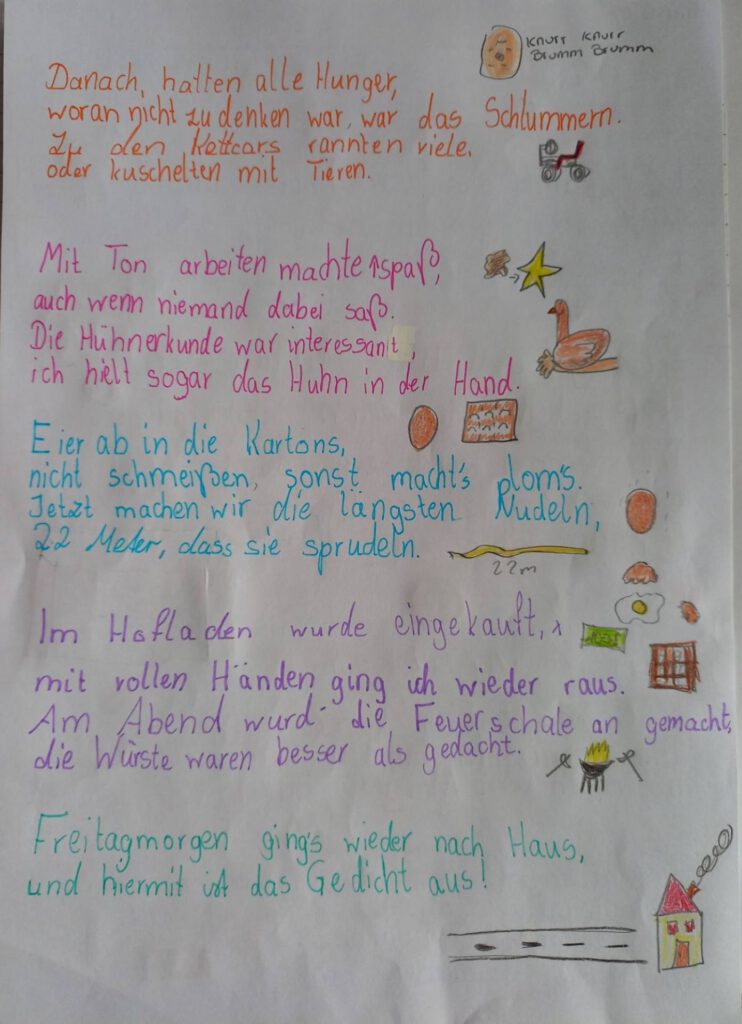 Knurr Knurr
Brumm Brumm
Danach, hatten alle Hunger,
woran nicht zu denken war, war das Schlummern.
Zu den Kettcars rannten viele,
oder kuschelten mit Tieren.
Mit Ton arbeiten machte spaß,
auch wenn niemand dabei saß.
Die Hühnerkunde war interessant,
ich hielt sogar das Huhn in der Hand.
Eier ab in die Kartons,
nicht schmeißen, sonst macht's ploms.
Jetzt machen wir die längsten Nudeln,
22 Meter, dass sie sprudeln.
22m
Im Hofladen wurde eingekauft,
mit vollen Händen ging ich wieder raus.
Am Abend wurd die Feuerschale an gemacht,
die Würste waren besser als gedacht.
Freitagmorgen ging's wieder nach Haus,
und hiermit ist das Gedicht aus!